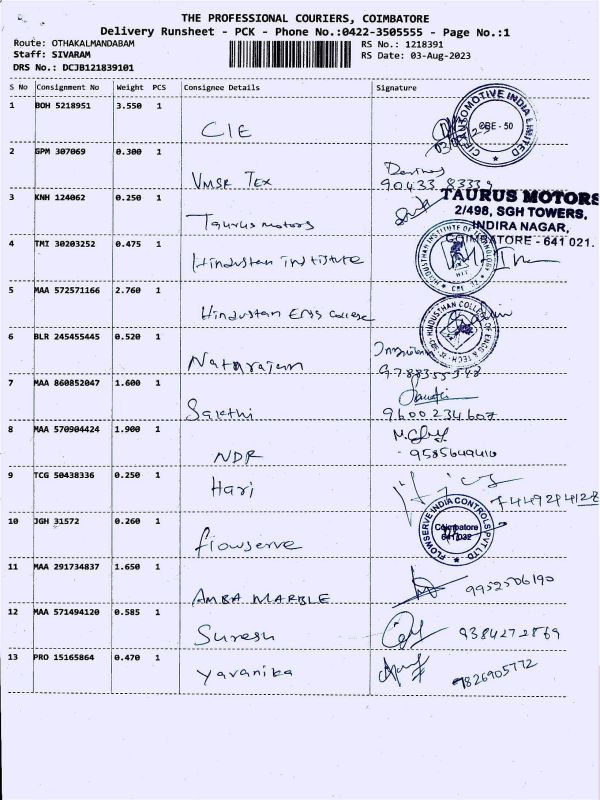 THE PROFESSIONAL COURIERS, COIMBATORE
Delivery Runsheet - PCK - Phone No.:0422-3505555 - Page No.:1
Route: OTHAKALMANDABAM
RS No.: 1218391
Staff: SIVARAM
RS Date: 03-Aug-2023
DRS No.: DCJB121839101
S No Consignment No Weight PCS Consignee Details Signature
1 BOH 5218951 3.550 1
CIE
CIE AUTOMOTIVE INDIA LIMITED
CBE - 50
2 GPM 307069 0.300 1
VMSR Tex
90433 83339
3 KNH 124062 0.250 1
Taurus motors
TAURUS MOTORS
2/498, SGH TOWERS,
INDIRA NAGAR,
COIMBATORE - 641 021.
4 TMI 30203252 0.475 1
Hindustan institute
HINDUSTHAN INSTITUTE OF TECHNOLOGY
HIT
CBE-32
5 MAA 572571166 2.760 1
Hindustan Engg College
HINDUSTHAN COLLEGE OF ENGG & TECH
CBE-32
6 BLR 245455445 0.520 1
Natarajan
7 MAA 860852047 1.600 1
Sakthi
9600234607
8 MAA 570904424 1.900 1
NDR
9585649410
9 TCG 50438336 0.250 1
Hari
10 JGH 31572 0.260 1
flowserve
FLOWSERVE INDIA CONTROLS PVT LTD
Coimbatore
641 032
11 MAA 291734837 1.650 1
AMBA MARBLE
9952506190
12 MAA 571494120 0.585 1
Suresh
9384272869
13 PRO 15165864 0.470 1
Yavanika
9826905772